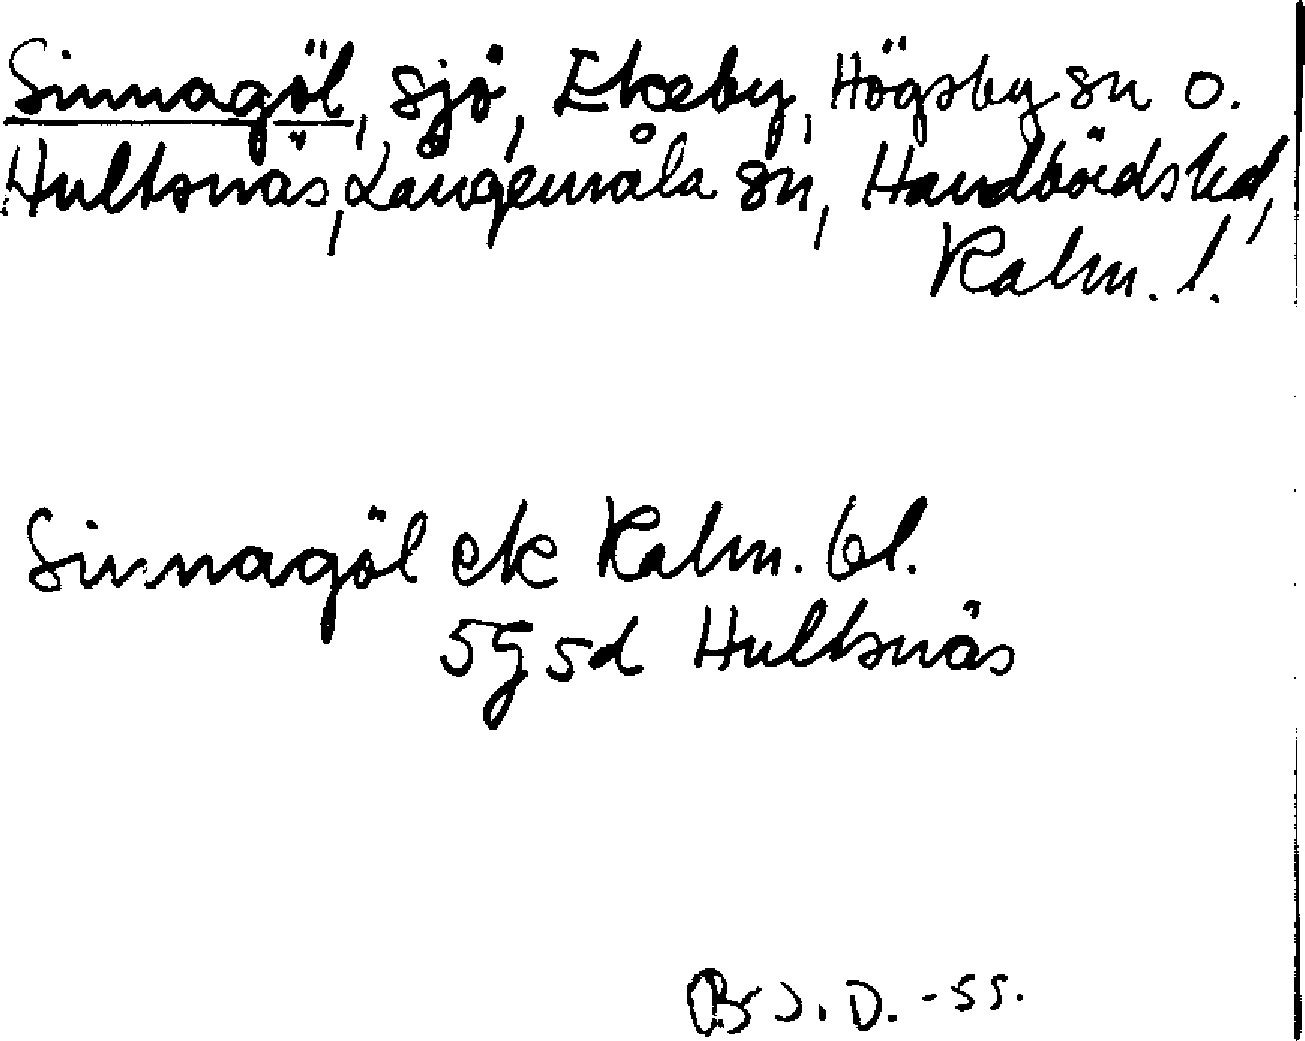 Sinnagöl, sjö, Ekeby, Högsby sn o.
Hultsnäs, Långemåla sn, Handbördshd,
Kalm. l.
Sinnagöl ek Kalm. bl.
5G5d Hultsnäs
B J. D. -55.